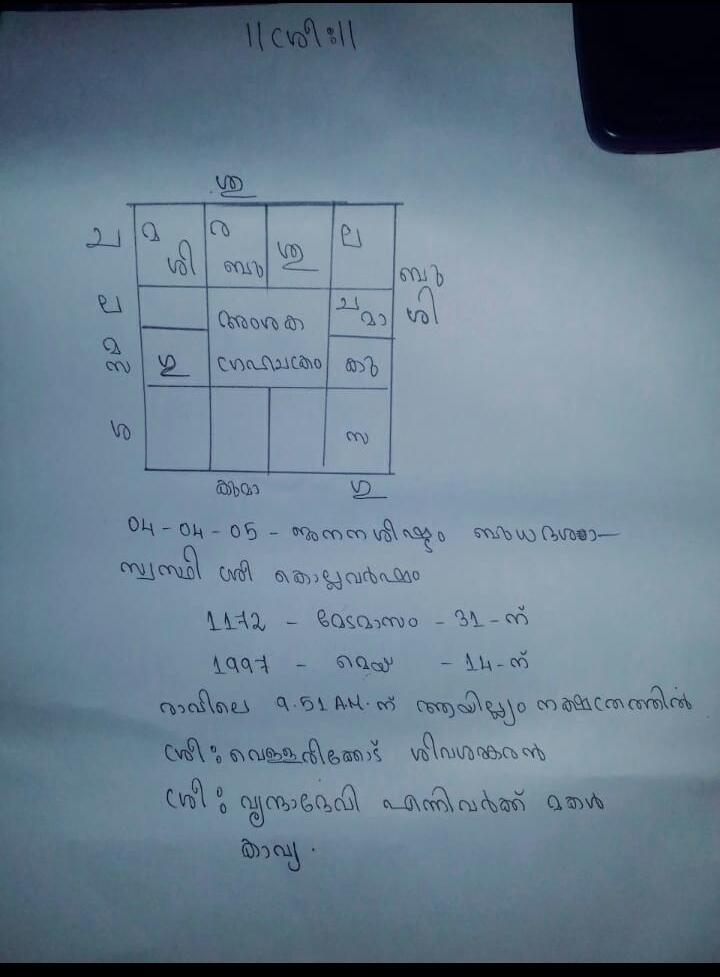 ||ശ്രീഃ||
ശു
ച മ ശി ര ബു ശു ല ബു
ല അംശക ച മാ ശി
മ സ ഗു ഗ്രഹചക്രം കു
ശ സ
കുമാ ഗു
04-04-05 - ജനനശിഷ്ടം ബുധദശാ
സ്വസ്ഥി ശ്രീ കൊല്ലവർഷം
1172 - മേടമാസം - 31-ന്
1997 - മെയ് - 14-ന്
രാവിലെ 9.51 A.M.ന് ആയില്ല്യം നക്ഷത്രത്തിൽ
ശ്രീ: വെള്ളരിക്കോട് ശിവശങ്കരൻ
ശ്രീ: വൃന്ദാദേവി എന്നിവർക്ക് മകൾ
കാവ്യ.